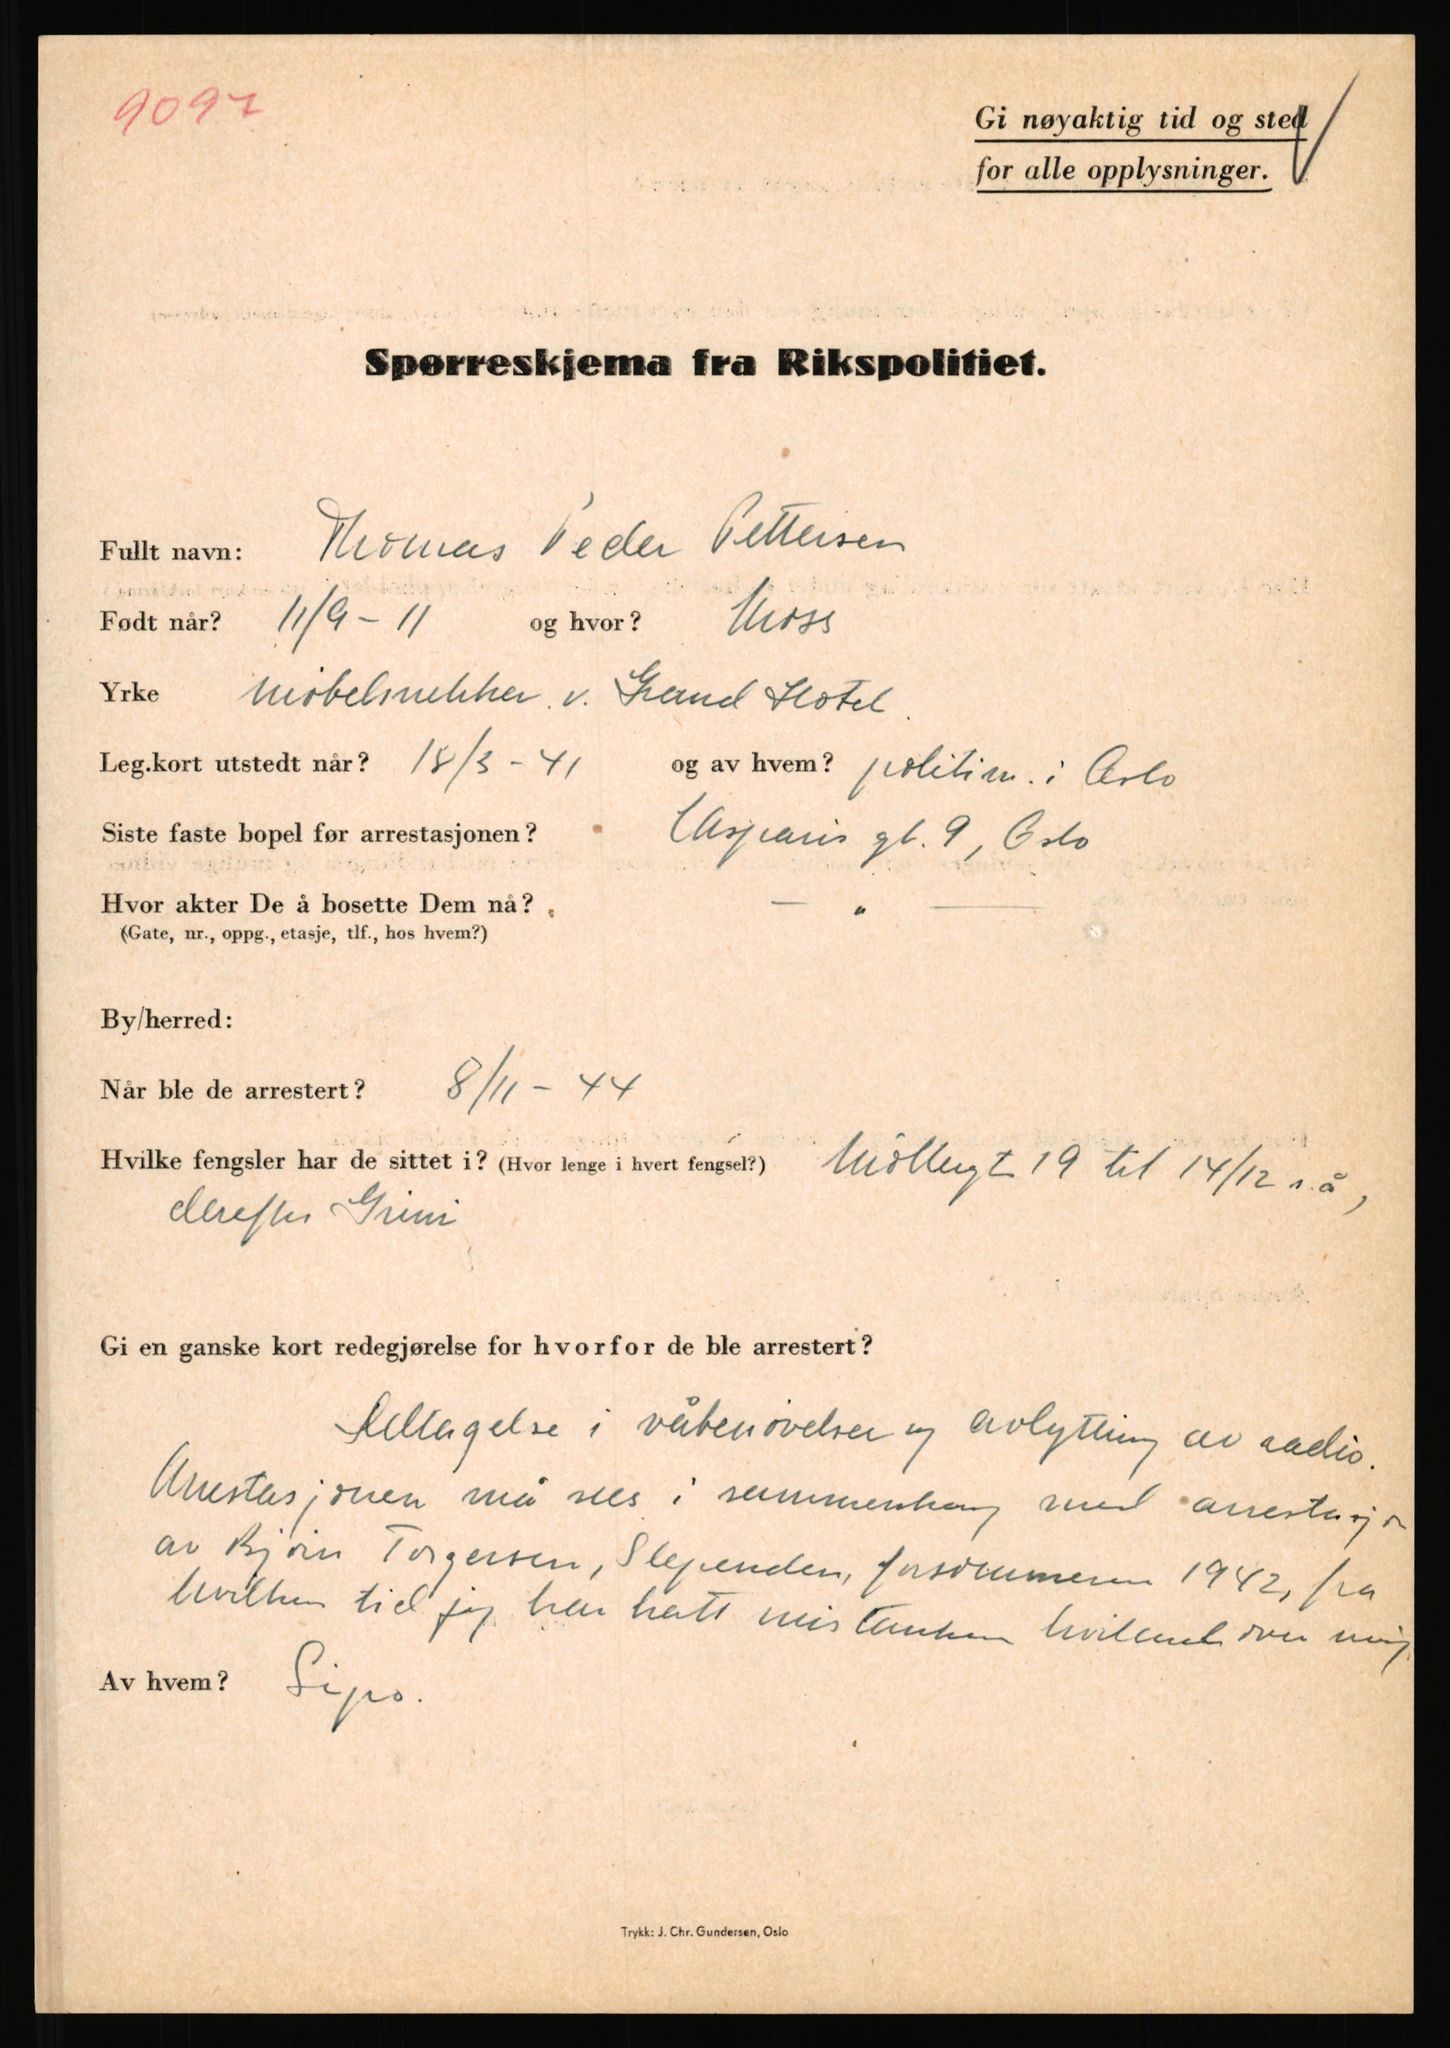 9097
Gi nøyaktig tid og sted
for alle opplysninger.
Spørreskjema fra Rikspolitiet.
Fullt navn: Thomas Peder Pettersen
Født når? 11/9 - 11 og hvor? Moss
Yrke møbelsnekker v. Grand Hotel.
Leg.kort utstedt når? 18/3 - 41 og av hvem? politim. i Oslo
Siste faste bopel før arrestasjonen? Casparis gt. 9, Oslo
Hvor akter De å bosette Dem nå? — „ —
(Gate, nr., oppg., etasje, tlf., hos hvem?)
By/herred:
Når ble de arrestert? 8/11 - 44
Hvilke fengsler har de sittet i? (Hvor lenge i hvert fengsel?) Møllergt 19 til 14/12 s.å,
derefter Grini
Gi en ganske kort redegjørelse for hvorfor de ble arrestert?
Deltagelse i våbenøvelser og avlytting av radio.
Arrestasjonen må sees i sammenheng med arrestasjon
av Bjørn Torgersen, Slependen, forsommeren 1942, fra
hvilken tid jeg har hatt mistanken hvilende over meg.
Av hvem? Sipo.
Trykk: J. Chr. Gundersen, Oslo